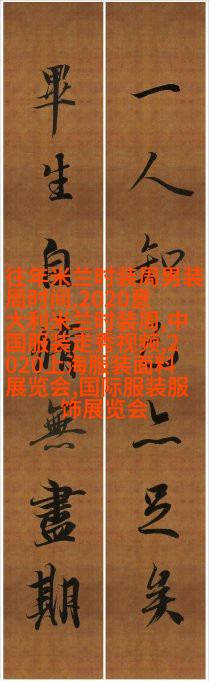 一人知己亦足矣
畢生自修無盡期
往年米兰时装周男装
周时间,2020意
大利米兰时装周,中
国服装走秀视频,2
020上海服装面料
展览会,国际服装服
饰展览会